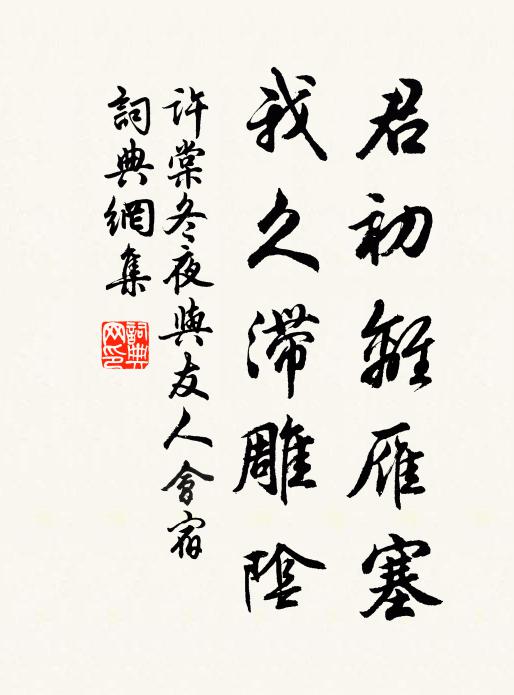 君初離雁塞
我久滯雕陰
許棠冬夜與友人會宿
詞典網集
詞典網印